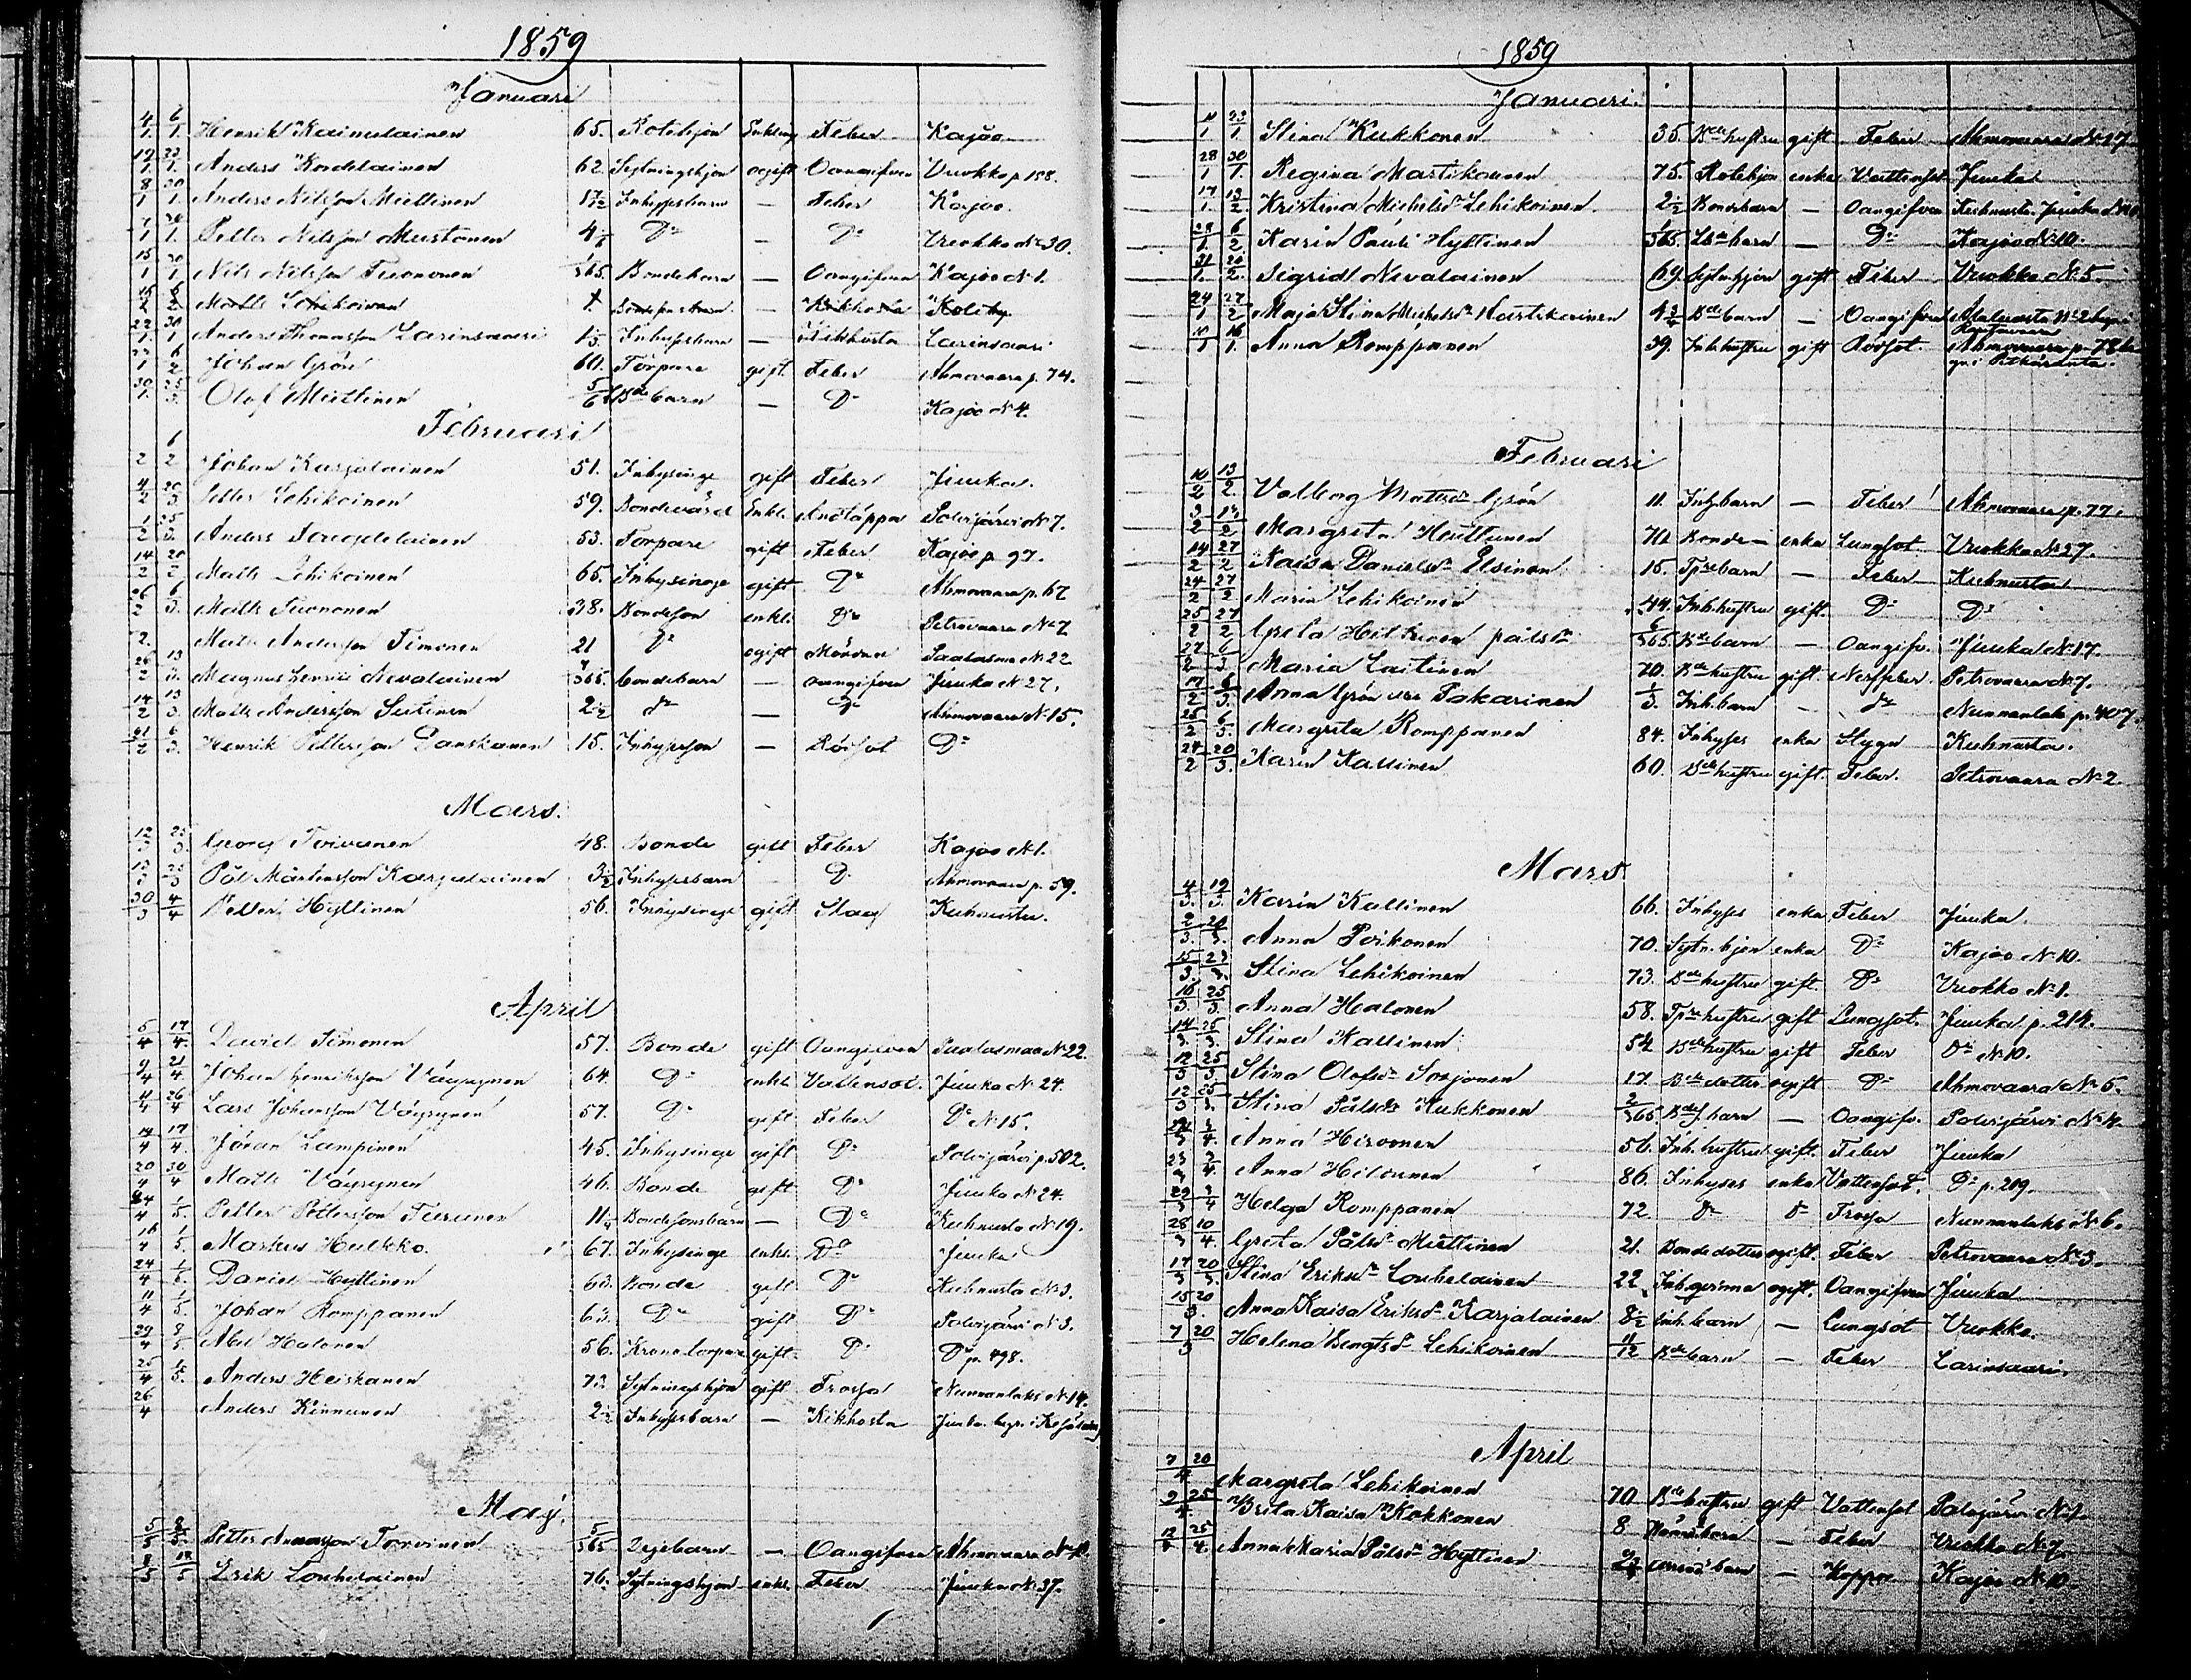 1859
Januari
4/1. 6/1. Henrik Kainulainen 65. Rotehjon Enkling Feber Kajoo
19/1. 23/1. Anders Kordelainen 62. Sytningshjon ogift Oangifven Vuokko p. 158.
8/1 30/1. Anders Nilsson Miettinen Inhyses barn — Feber Kajoo.
7/1 30/1. Petter Nilsson Mustonen 4 D:o — D:o Vuokko No 30.
15/1 30/1 Nils Nilsson Turunen /365. Bondebarn — Oangifven Kajoo No 1.
Matts Lehikoinen 1. Kikhosta
22/1. 30/1 Anders Thomasson Larinsaari Inhyses barn — Kikhosta Larinsaari
27/1 6/2 Johan Grön 60. Torpare gift. Feber Ahmovaara p. 74.
30/1. 25/3. Olof Miettinen 5/6 Bde barn — D:o Kajoo No 4.
Februari
2/2 6/2 Johan Karjalainen 51. Inhysinge gift Feber Juuka.
4/2 20/3 Petter Lehikoinen 59. Bondevärd Enkl. Andtäppa Polvijärvi No 7.
1/2 25/3. Anders 53. Torpare gift Feber Kajoo p. 97.
14/2 20/2 Matts Lehikoinen 65. Inhysinge gift D:o Ahmovaara p. 67
26/2 6/3. Matts Turunen 38. Bondeson enkl. D:o Petrovaara No 7
2. Matts Andersson Timonen 21 D:o ogift Paalasmaa No 22
26/2 13/3. Magnus Henrics Nevalainen /365. bondebarn — oangifven Juuka No 27.
14/2 13/3. Matts Andersson 2 1/2 d:o — D:o Ahmovaara No 15.
21/2 6/3. Henrik Pettersson Danskanen 15. Inhyses son — Rödsot D:o
Mars.
12/3 25/3. Georg Toivanen 48. Bonde gift Feber Kajoo No 1.
13/3 25/3 Pål Mårtensson Karjalainen 3 1/2 Inhyses barn — D:o Ahmovaara p. 59.
30/3 4/4 Petter Hyttinen 56. Inhysinge gift Slag Kuhnusta.
April
5/4 17/4. David Timonen 57. Bonde gift Oangifven Paalasmaa No 22.
9/4 21/4 Johan Henriksson Väyrynen 64. D:o enkl. Vattensot. Juuka No 24.
11/4 26/4 Lars Johansson Väyrynen 57. D:o gift Feber D:o No 15.
14/4 17/4. Jöran Lampinen 45. Inhysinge gift D:o Polvijärvi p. 502.
20/4 30/4 Matts Väyrynen 46. Bonde gift D:o Juuka No 24.
24/4 1/5. Petter Pettersson Turunen 11 1/4 Bondesonsbarn — D:o Kuhnusta No 19.
16/4 1/5. Markus Hulkko. 67. Inhysinge enkl. D:o Juuka
24/4 1/5. Daniel Hyttinen 63. Bonde gift D:o Kuhnusta No 3.
11/4 1/5. Johan Romppanen 63. D:o gift D:o Polvijärvi No 3.
29/4 8/5. Abel Halonen 56. Kronotorpare gift D:o D:o p. 498.
25/4 1/5. Anders Heiskanen 73. Sytningshjon gift Frossa Nunnanlaks No 14.
26/4 Anders Kinnunen 2 1/2 Inhyses barn — Kikhosta Juuka begr. i
Maj.
5/5 8/5. Petter Torvinen 5/365 Legobarn — Oangifven Ahmovaara No
8/5 18/5 Erik Louhelainen 76. Sytningshjon enkl. Feber Juuka No 37.
1859
Januari.
11/1 23/1. Stina Kukkonen 35. Bde hustru gift Feber Ahmovaara No 17
28/1 30/1. Regina Martikainen 75. Rotehjon enka Vattensot Juuka
17/1. 13/2. Kristina Michelsdr Lehikoinen. 2 1/2 Bondebarn — Oangifven Kuhnusta, Juuka No 10
28/1. 6/2 Karin Pauli Hyttinen /365. Bde barn — D:o Kajoo No 10.
31/1. 20/2. Sigrid Nevalainen 69. Sytn.hjon gift Feber Vuokko No 5.
24/1 27/2 Maja Stina Michelsdr Martikainen 4 3/4 Bde barn — Oangifven No 2
11/1 16/1. Anna Romppanen 39. Inh.hustru gift Rödsot. Ahmovaara p. 78
gr. i Pitkäranta.
Februari
10/2 13/2. Valborg Mattsdr Grön 11. Inh.barn — Feber Ahmovaara p. 77.
3/2 13/2 Margreta Huttunen 70 Bonde— enka Lungsot Vuokko No 27.
14/2 27/2 Kaisa Danielsdr Elsinen 15. Tpre barn — Feber Kuhnusta
24/2 27/2. Maria Lehikoinen 44. Inh.hustru gift. D:o D:o
25/2 27/2 Greta Hiltunen pålsdr 6/365 Bde barn — Oangifv. Juuka No 17.
27/2 6/3 Maria Laitinen 70. Bde hustru gift Nerffeber Petrovaara No 7.
17/2 6/3. Anna Grön Pakarinen 1/3. Inh.barn — d:o Nunnanlaks p. 407.
25/2 6/3. Margreta Romppanen 84. Inhyses enka Stygn Kuhnusta.
24/2 20/3. Karin Kallinen 60. Bde hustru gift. Feber. Petrovaara No 2.
Mars
4/3. 19/3. Karin Kallinen 66. Inhyses enka Feber Juuka.
2/3. 20/3. Anna Poikonen 70. Sytn. hjon enka D:o Kajoo No 10.
15/3. 23/3. Stina Lehikoinen 73. Bde hustru gift. D:o Vuokko No 1.
16/3. 25/3 Anna Halonen 58. Tpre hustru gift Lungsot. Juuka p. 214.
14/3. 25/3. Stina Kallinen 54 Bde hustru gift Feber D:o No 10.
12/3 25/3. Stina Olofsdr Sorjonen 17. Bde dotter ogift D:o Ahmovaara No 5.
12/3 25/3. Stina Pålsdr Kukkonen 2/365 Bdes. barn — Oangifv. Polvijärvi No 4.
3/4. Anna Hirvonen 56. Inh.hustru gift. Feber Juuka
23/3 3/4. Anna Hiltunen 86. Inhyses enka Vattensot. D:o p. 209.
29/3 3/4 Helga Romppanen 72. D:o d:o Frossa Nunnanlaks No 6.
28/3 10/4. Greta Pålsdr Miettinen 21. Bonde dotter ogift. Feber Petrovaara No 3.
17/3 20/3. Stina Eriksdr Louhelainen 22. Inh.qvinna ogift. Oangifven Juuka
15 20/3. Anna Kaisa Eriksdr Karjalainen 8 1/2 Inh. barn — Lungsot Vuokko.
7/3 20 Helena Bengtsdr Lehikoinen 11/12 Bde barn — Feber Larinsaari.
April
7/4 20 Margreta Lehikoinen 70 Bde hustru gift Vattensot Polvijärvi No 1.
9/4. 25 Brita Kaisa Kokkonen 8 barn — Feber Vuokko No 7.
12/4 25/4. Anna Maria Pålsdr Hyttinen barn — Koppor Kajoo No 10.